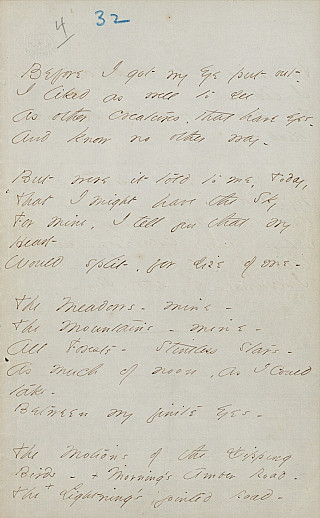 4 32
Before I got my Eye put out -
I liked as well to see
As other Creatures, that have Eyes -
And know no other way -
But were it told to me, Today,
That I might have the Sky
For mine, I tell you that my
Heart
Would split, for size of me -
The Meadows - mine -
The Mountains - mine -
All Forests - Stintless Stars -
As much of noon, as I could
take -
Between my finite Eyes -
The Motions of the Dipping
Birds - + Morning's Amber Road -
The + Lightning's jointed Road -